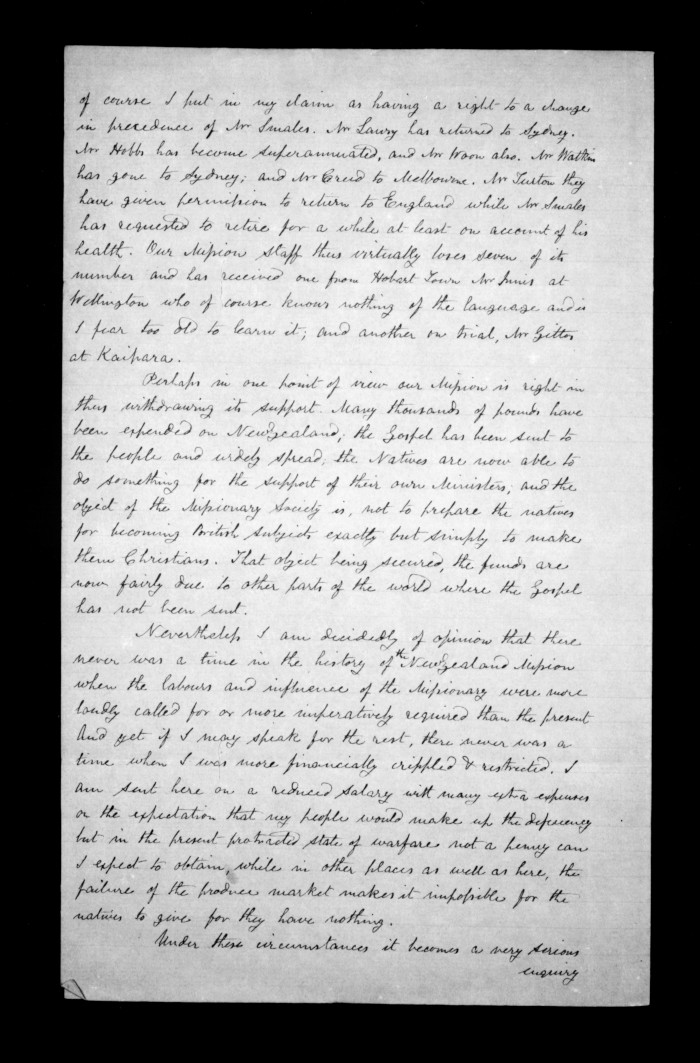 of course I put in my claim as having a right to a change
in precedence of Mr Smales. Mr Lawry has returned to Sydney.
Mr Hobbs has become superannuated, and Mr Woon also. Mr Watkin
has gone to Sydney; and Mr Creed to Melbourne. Mr Turton they
have given permission to return to England while Mr Smales
has requested to retire for a while at least on account of his
health. Our Mission staff thus virtually loses seven of its
number and has received one from Hobart Town Mr Innis at
Wellington who of course knows nothing of the language and is
I fear too old to learn it; and another on trial, Mr Gittos
at Kaipara.
Perhaps in one point of view our Mission is right in
thus withdrawing its support. Many thousands of pounds have
been expended on New Zealand; the Gospel has been sent to
the people and widely spread, the Natives are now able to
do something for the support of their own Ministers, and the
object of the Missionary Society is, not to prepare the natives
for becoming British subjects exactly but simply to make
them Christians. That object being secured, the funds are
now fairly due to other parts of the world where the Gospel
has not been sent.
Nevertheless I am decidedly of opinion that there
never was a time in the history of the New Zealand Mission
when the labours and influence of the Missionary were more
loudly called for or more imperatively required than the present
And yet if I may speak for the rest, there never was a
time when I was more financially crippled & restricted. I
am sent here on a reduced salary with many extra expenses
on the expectation that my people would make up the deficiency
but in the present protracted state of warfare not a penny can
I expect to obtain, while in other places as well as here, the
failure of the produce market makes it impossible for the
natives to give for they have nothing.
Under these circumstances it becomes a very serious
enquiry